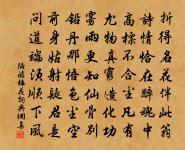 折得名花伴此翁
詩情恰在醉魂中
高標不合塵凡有
尤物真窮造化功
霧雨更知仙骨別
鉛丹那悟色塵空
前身姑射疑君是
問道端須順下風
陸游梅花詞